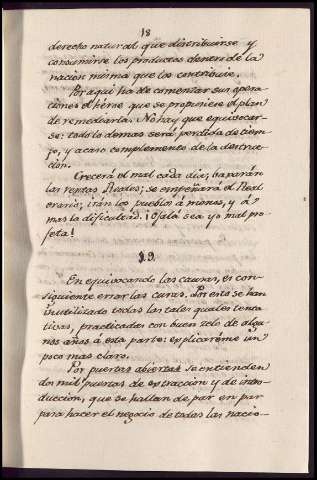 18
derecho natural, que distribuirse y
consumirse los productos dentro de la
nacion misma que los contribuie.
Por aqui ha de comenzar sus opera-
ciones el héroe que se proponiere el plan
de remediarla. No hay que equivocar-
se: todo lo demas será perdida de tiem-
po, y acaso complemento de la destruc-
cion.
Crecerá el mal cada dia; bajarán
las rentas Reales; se empeñará el Real
erario; irán los pueblos á menos, y á
mas la dificultad. ¡Ojalá sea yo mal pro-
feta!
§. 9.
En equivocando las causas, es con-
siguiente errar las curas. Por esto se han
inutilizado todas las tales quales tenta-
tivas, practicadas con buen zelo de algu-
nos años á esta parte: explicaréme un
poco mas claro.
Por puertas abiertas se entienden
dos mil puertas de extraccion y de intro-
duccion, que se hallan de par en par
para hacer el negocio de todas las nacio-